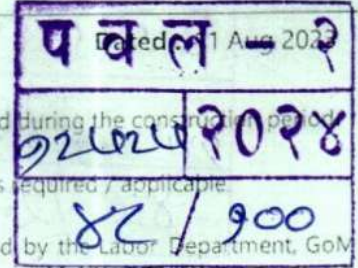 Dated 1 Aug 2023
प व ल - २
d during the construction period
२०२४
s required / applicable.
४८ / १००
d by the Labor Department, GoM